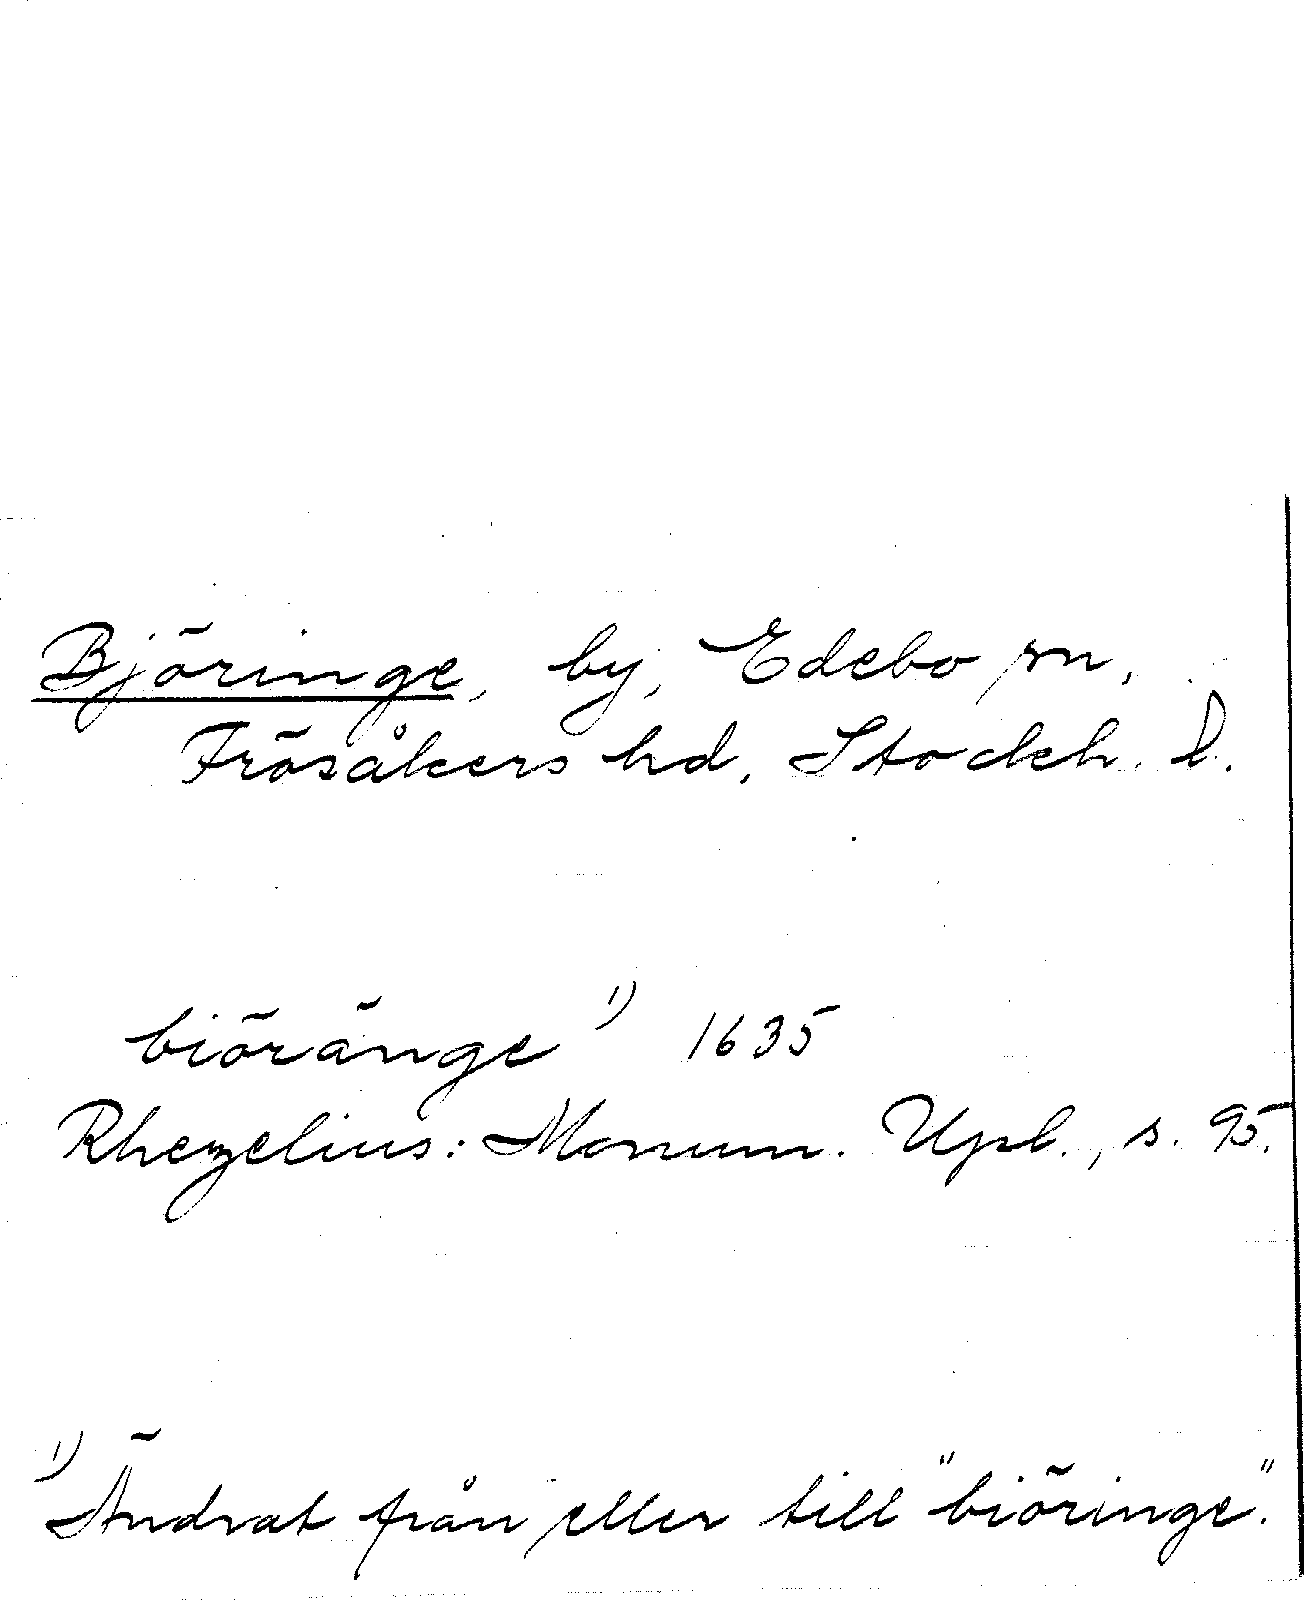 Björinge, by, Edebo sn,
Frösåkers hd, Stockh. l.
biöränge 1) 1635
Rhezelius: Monum. Upl., s. 95.
1) Ändrat från eller till "biöringe."